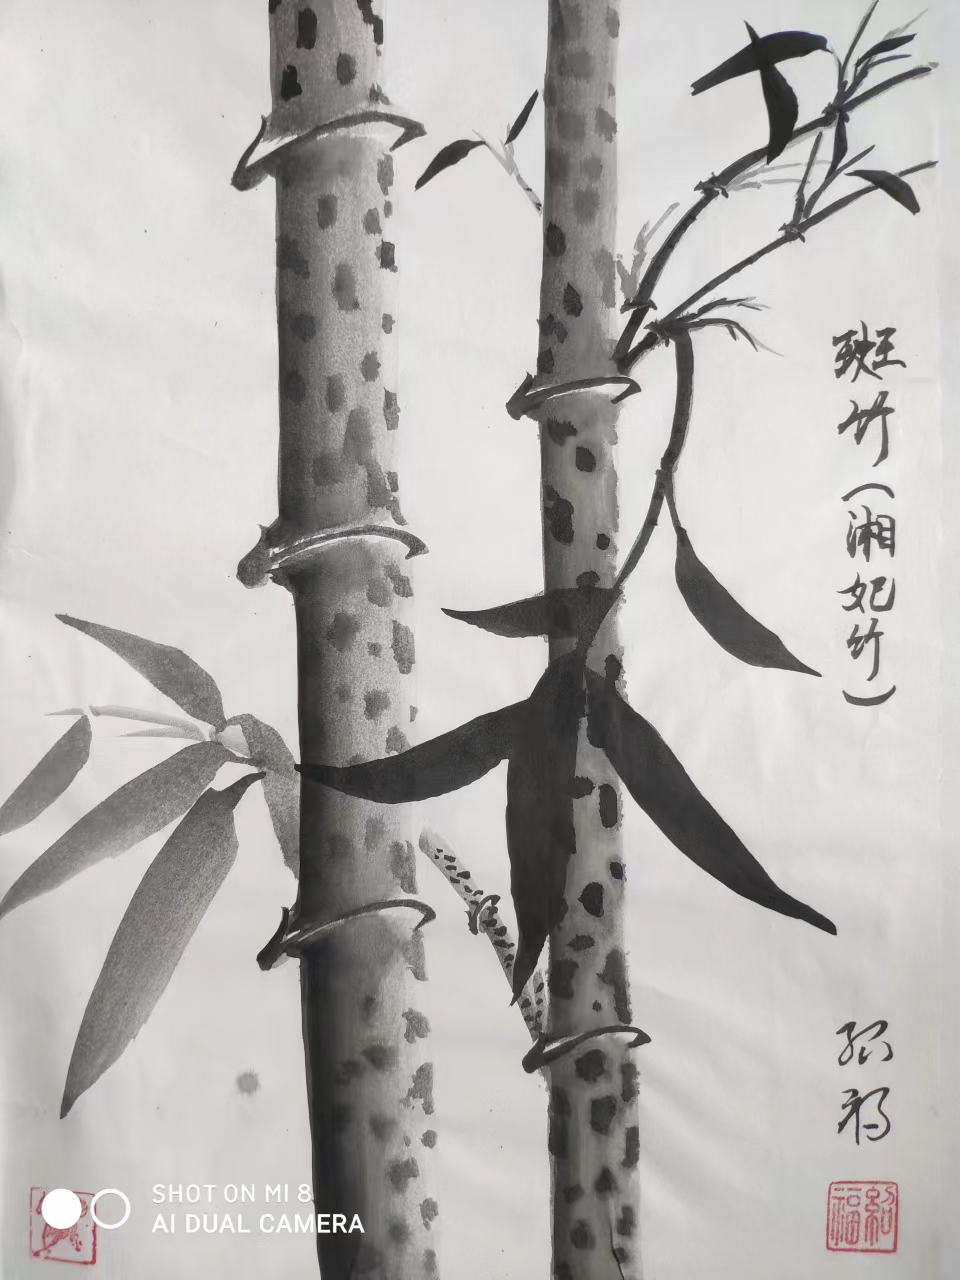 斑竹(湘妃竹)
紹福
SHOT ON MI 8
AI DUAL CAMERA